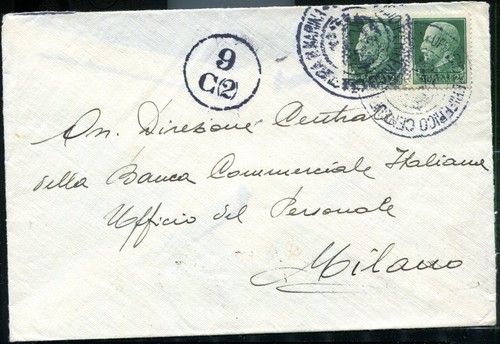 9
C2
On. Direzione Centrale
della Banca Commerciale Italiana
Ufficio del Personale
Milano